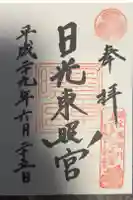 奉拝
日光東照宮
平成二十九年六月二十五日